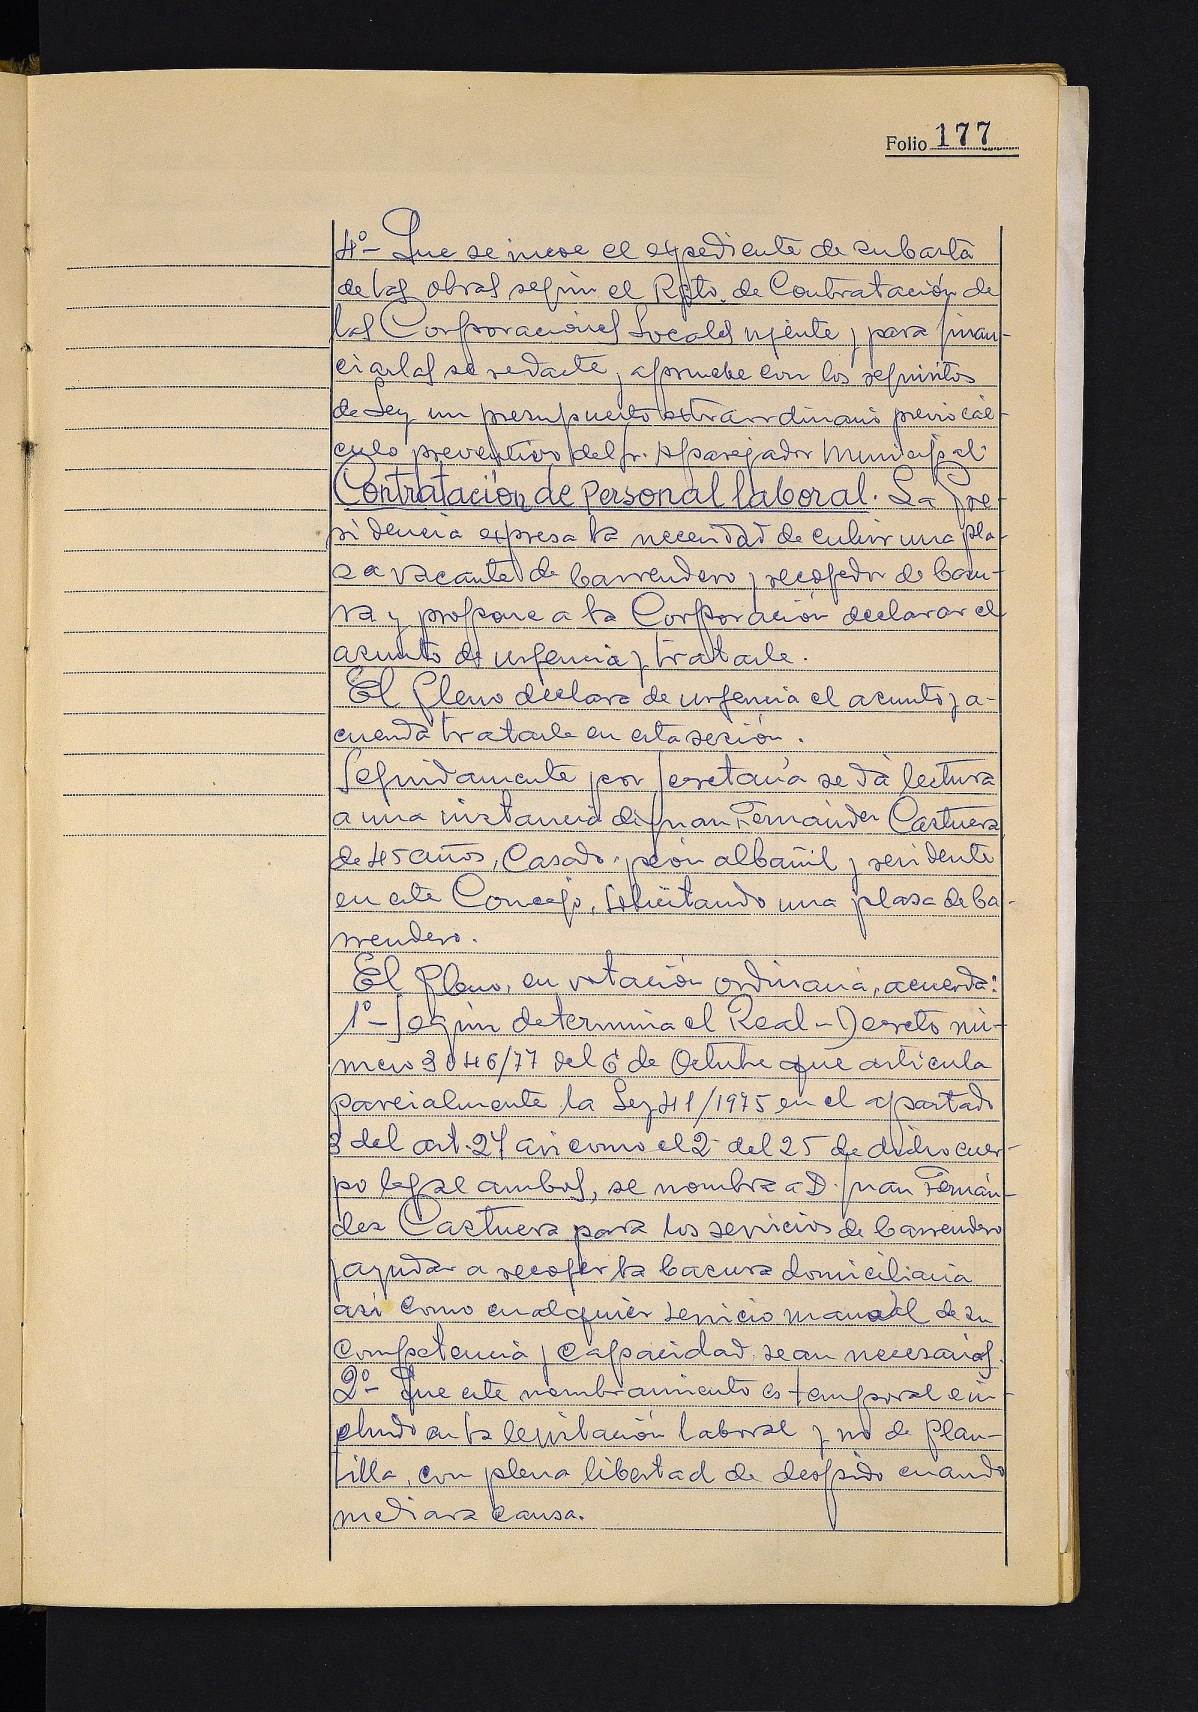 Folio 177
4º- Que se incoe el expediente de subasta
de las obras según el Rgto. de Contratación de
las Corporaciones Locales vigente y para finan-
ciarlas se redacte y apruebe con los requisitos
de Ley un presupuesto extraordinario previo cál-
culo preventivo del Sr. Aparejador Municipal.
Contratación de Personal laboral. La Pre-
sidencia expresa la necesidad de cubrir una pla-
za vacante de barrendero y recogedor de basu-
ra y propone a la Corporación declarar el
asunto de urgencia y tratarle.
El Pleno declara de urgencia el asunto y a-
cuerda tratarle en esta sesión.
Seguidamente por Secretaría se dá lectura
a una instancia de Juan Fernández Castuera
de 45 años, Casado, peón albañil y residente
en este Concejo, solicitando una plaza de ba-
rrendero.
El Pleno, en votación ordinaria, acuerda:
1º- Según determina el Real-Decreto nú-
mero 3046/77 del 6 de Octubre que articula
parcialmente la Ley 41/1975 en el apartado
3 del art. 24 asi como el 2 del 25 de dicho cuer-
po legal ambos, se nombra a D. Juan Fernán-
dez Castuera para los servicios de barrendero
y ayudar a recoger la basura domiciliaria
asi como cualquier servicio manual de su
competencia y capacidad sean necesarios.
2º- Que este nombramiento es temporal e in-
cluido en la legislación laboral y no de Plan-
tilla, con plena libertad de despido cuando
mediara causa.